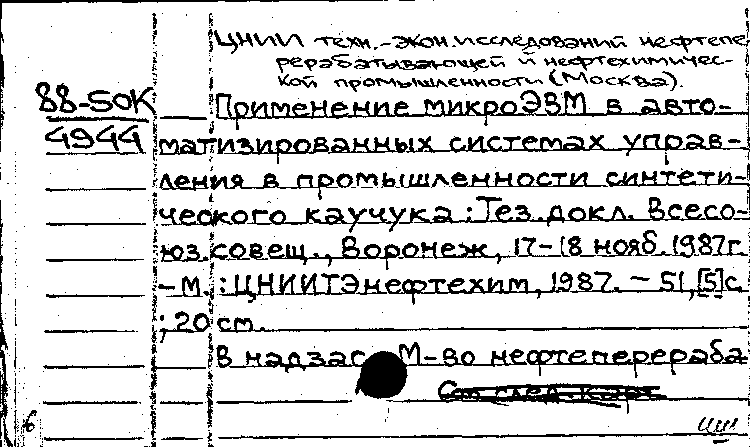 ЦНИИ техн.-экон.исследований нефтепе
рерабатывающей и нефтехимичес-
кой промышленности (Москва).
88-50К
Применение микроЭВМ в авто-
4944
матизированных системах управ-
ления в промышленности синтети-
ческого каучука : Тез. докл. Всесо-
юз. совещ., Воронеж, 17-18 нояб. 1987г.
- М. : ЦНИИТЭнефтехим, 1987. - 51, [5] с.
; 20 см.
В надзаг. М-во нефтеперераба
См. след. карт.
6